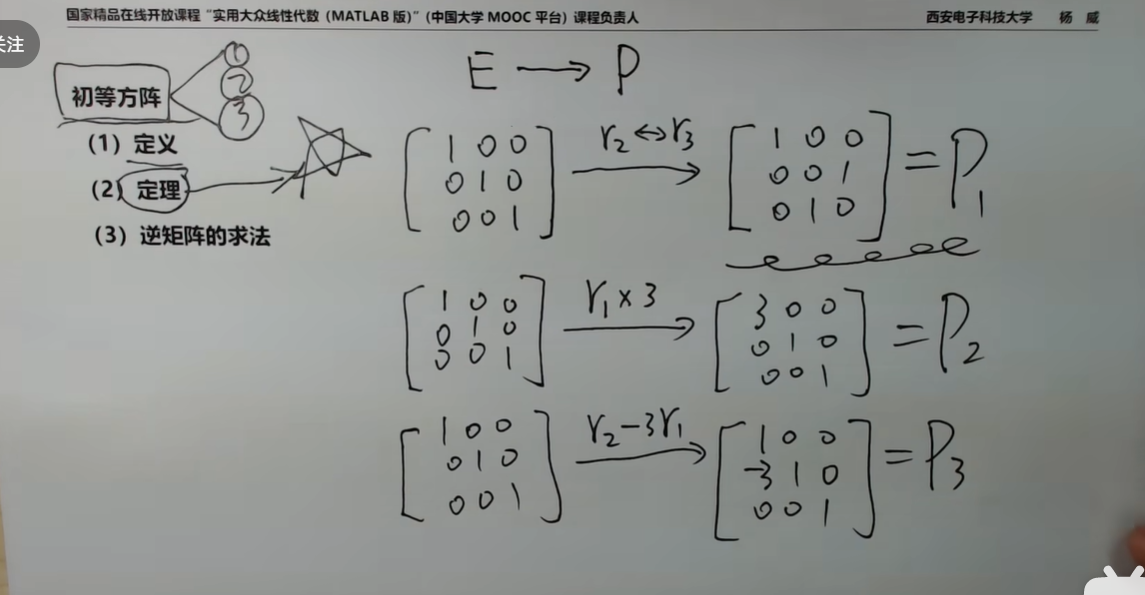 国家精品在线开放课程“实用大众线性代数（MATLAB 版）”（中国大学 MOOC 平台）课程负责人 西安电子科技大学 杨 威
关注
初等方阵 ① ② ③
（1）定义
（2）定理
（3）逆矩阵的求法
E → P
[1 0 0
0 1 0
0 0 1] r₂↔r₃ → [1 0 0
0 0 1
0 1 0] = P₁
[1 0 0
0 1 0
0 0 1] r₁×3 → [3 0 0
0 1 0
0 0 1] = P₂
[1 0 0
0 1 0
0 0 1] r₂-3r₁ → [1 0 0
-3 1 0
0 0 1] = P₃